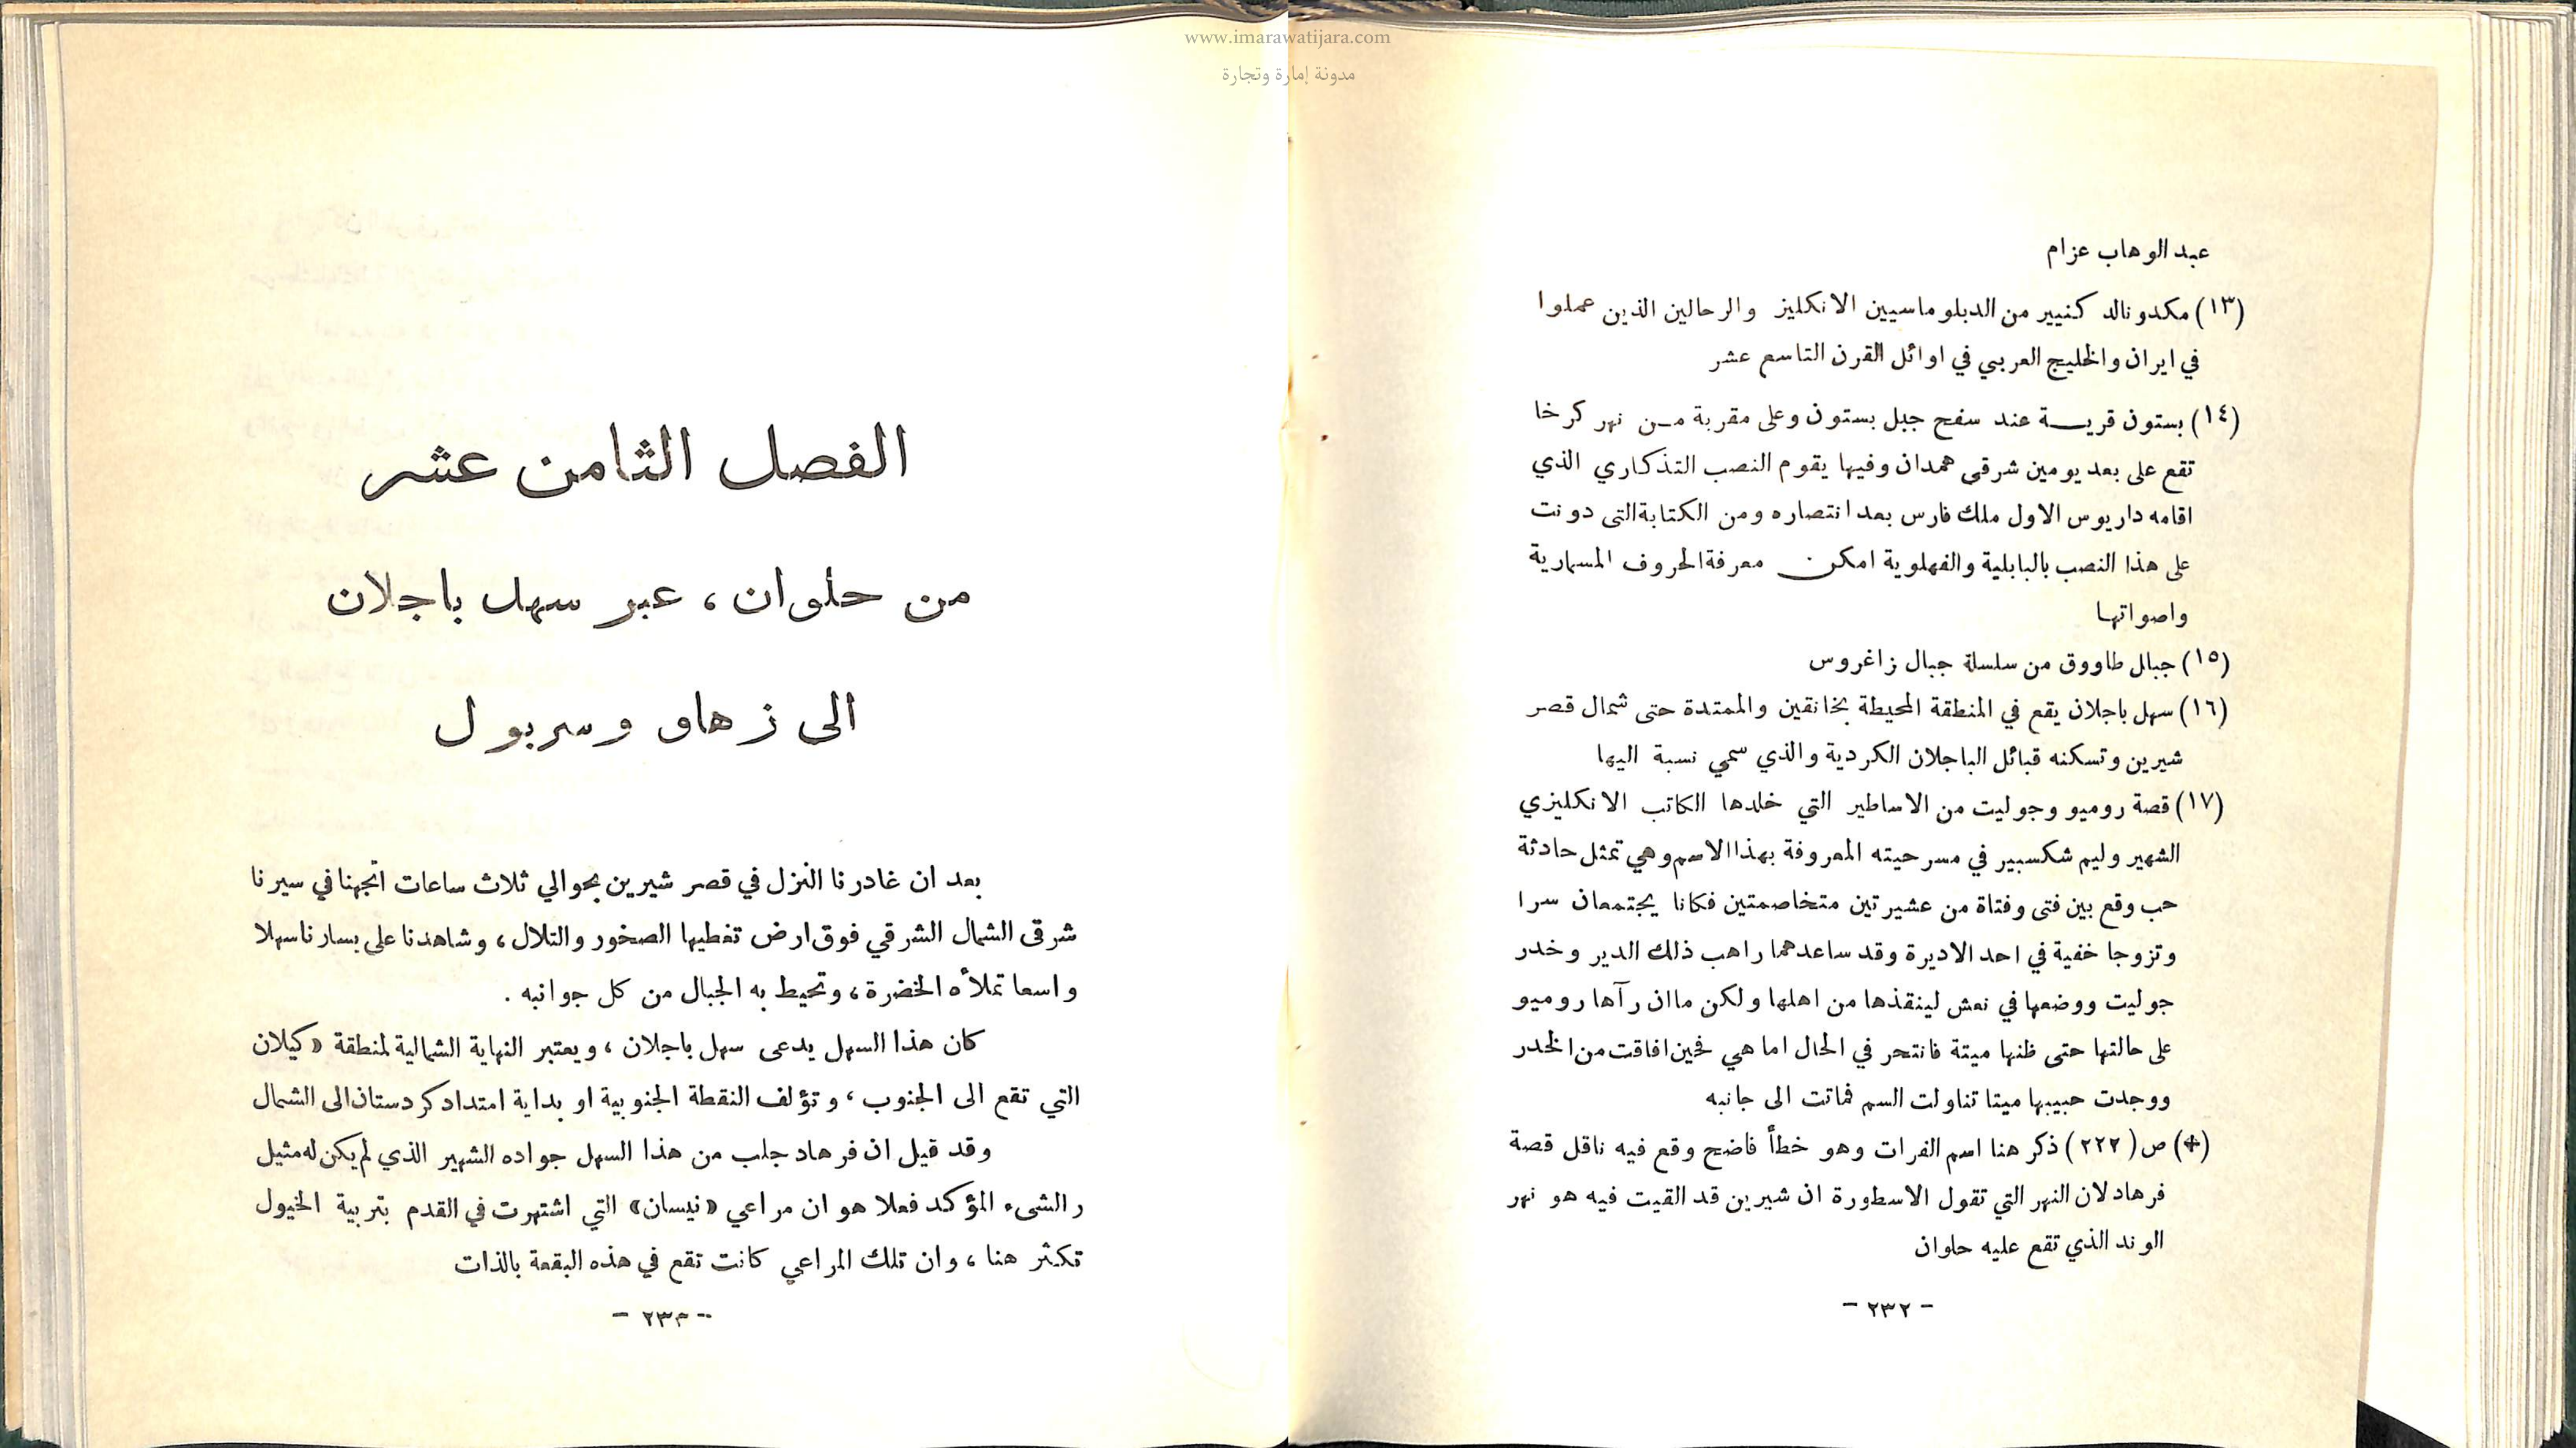 www.imarawatijara.com
مدونة إمارة وتجارة
عبد الوهاب عزام
(١٣) مكدونالد كنيير من الدبلوماسيين الانكليز والرحالين الذين عملوا
في ايران والخليج العربي في اوائل القرن التاسع عشر
(١٤) بستون قريـــة عند سفح جبل بستون وعلى مقربة مـن نهر كرخا
تقع على بعد يومين شرقى همدان وفيها يقوم النصب التذكاري الذي
اقامه داريوس الاول ملك فارس بعد انتصاره ومن الكتابة التى دونت
على هذا النصب بالبابلية والفهلوية امكن معرفة الحروف المسمارية
واصواتها
(١٥) جبال طاووق من سلسلة جبال زاغروس
(١٦) سهل باجلان يقع في المنطقة المحيطة بخانقين والممتدة حتى شمال قصر
شيرين وتسكنه قبائل الباجلان الكردية والذي سمي نسبة اليها
(١٧) قصة روميو وجوليت من الاساطير التي خلدها الكاتب الانكليزي
الشهير وليم شكسبير في مسرحيته المعروفة بهذا الاسم وهي تمثل حادثة
حب وقع بين فتى وفتاة من عشيرتين متخاصمتين فكانا يجتمعان سرا
وتزوجا خفية في احد الاديرة وقد ساعدهما راهب ذلك الدير وخدر
جوليت ووضعها في نعش لينقذها من اهلها ولكن ماان رآها روميو
على حالتها حتى ظنها ميتة فانتحر في الحال اما هي فحين افاقت من الخدر
ووجدت حبيبها ميتا تناولت السم فماتت الى جانبه
(✤) ص (٢٢٢) ذكر هنا اسم الفرات وهو خطأ فاضح وقع فيه ناقل قصة
فرهاد لان النهر التي تقول الاسطورة ان شيرين قد القيت فيه هو نهر
الوند الذي تقع عليه حلوان
- ٢٣٢ -
الفصل الثامن عشر
من حلوان ، عبر سهل باجلان
الى زهاو وسربول
بعد ان غادرنا النزل في قصر شيرين بحوالي ثلاث ساعات اتجهنا في سيرنا
شرقى الشمال الشرقي فوق ارض تغطيها الصخور والتلال ، وشاهدنا على يسارنا سهلا
واسعا تملأه الخضرة ، وتحيط به الجبال من كل جوانبه .
كان هذا السهل يدعى سهل باجلان ، ويعتبر النهاية الشمالية لمنطقة «كيلان
التي تقع الى الجنوب ، وتؤلف النقطة الجنوبية او بداية امتداد كردستان الى الشمال
وقد قيل ان فرهاد جلب من هذا السهل جواده الشهير الذي لم يكن له مثيل
ر الشىء المؤكد فعلا هو ان مراعي «نيسان» التي اشتهرت في القدم بتربية الخيول
تكثر هنا ، وان تلك المراعي كانت تقع في هذه البقعة بالذات
- ٢٣٣ -